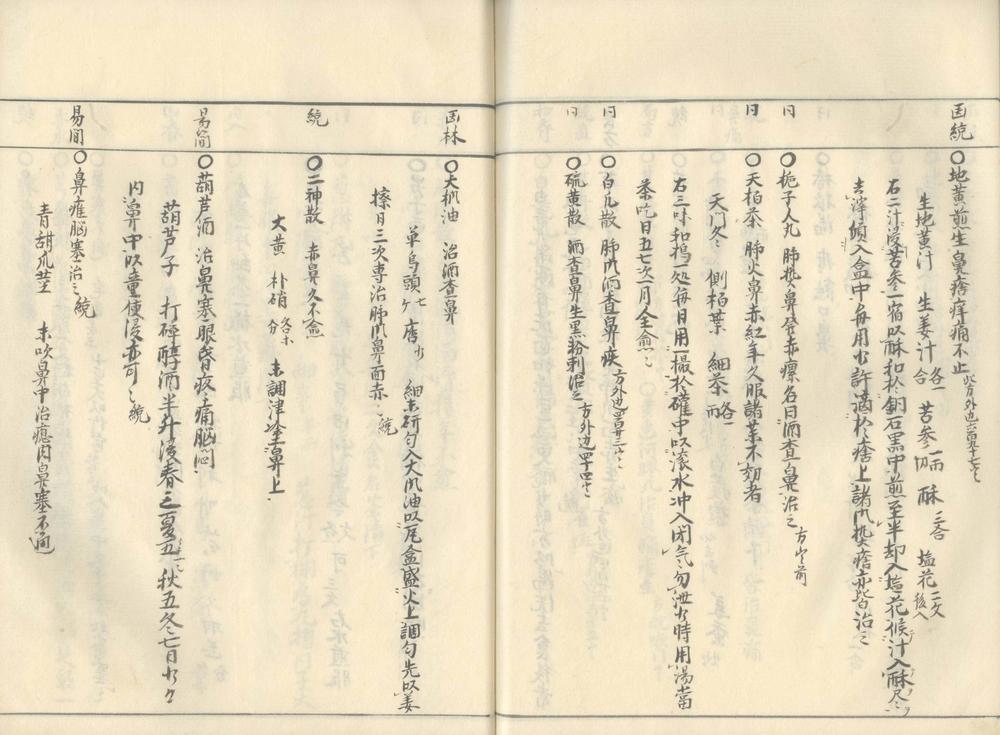 函統
○地黄煎 生鼻瘡痒痛不止
生地黄汁 生姜汁 各一合 苦参 一両 切 酥 三合 塩花 二文 後入
右二汁浸苦参一宿以酥和於銅石器中煎至半却入塩花候汁入酥尽
去滓傾入盒中毎用少許滴於瘡上諸肺熱瘡亦皆治之
同
○梔子人丸 肺熱鼻発赤瘰名曰酒査鼻治之 方出前
同
○天柏茶 肺火鼻赤紅年久服諸薬不効者
天門冬 側柏葉 細茶 各一両
右三味和搗一処毎日用一撮於礶中以滚水冲入閉気勿泄少時用湯当
茶吃日五七次二月全愈
同
○白凡散 肺風酒査鼻疾
同
○硫黄散 酒査鼻生黒粉刺治之
函林
○大楓油 治酒査鼻
草烏頭 七ケ 細末研匀入大風油以瓦盒盛火上調匀先以姜
擦日三次専治肺風鼻面赤 統
統
○二神散 赤鼻久不愈
大黄 朴硝 各等分 末調津塗鼻上
易簡
○葫芦酒 治鼻塞眼昏疼痛脳悶
葫芦子 打砕醇酒半升浸春三夏一秋五冬七日少々
内鼻中以童便浸亦可 統
易簡
○鼻癰脳塞治之 統
青甜瓜茎 末吹鼻中治瘜肉鼻塞不通